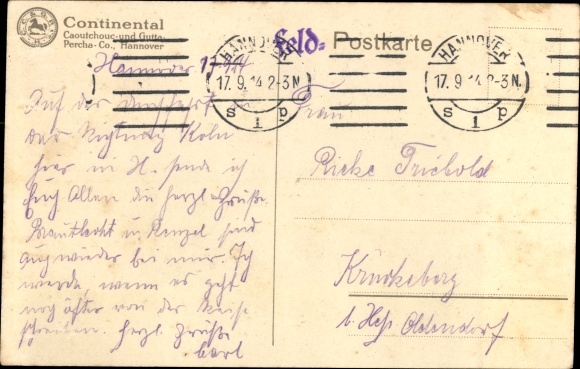 Continental
Caoutchouc-und Gutta-
Percha-Co., Hannover
Feld- Postkarte
HANNOVER
17.9.14 2-3N.
s 1 p
HANNOVER
17.9.14 2-3N.
s 1 p
Hannover 17/9 14
Auf der Durchfahrt in
der Richtung Köln
hier in H. sende ich
Euch Allen die herzl. Grüße.
u. Menzel sind
auch wieder bei mir. Ich
werde, wenn es geht
noch öfter von der Reise
schreiben. Herzl. Grüße
Carl
Frau
Rieke Triebold
Krückeberg
b. Hess. Oldendorf